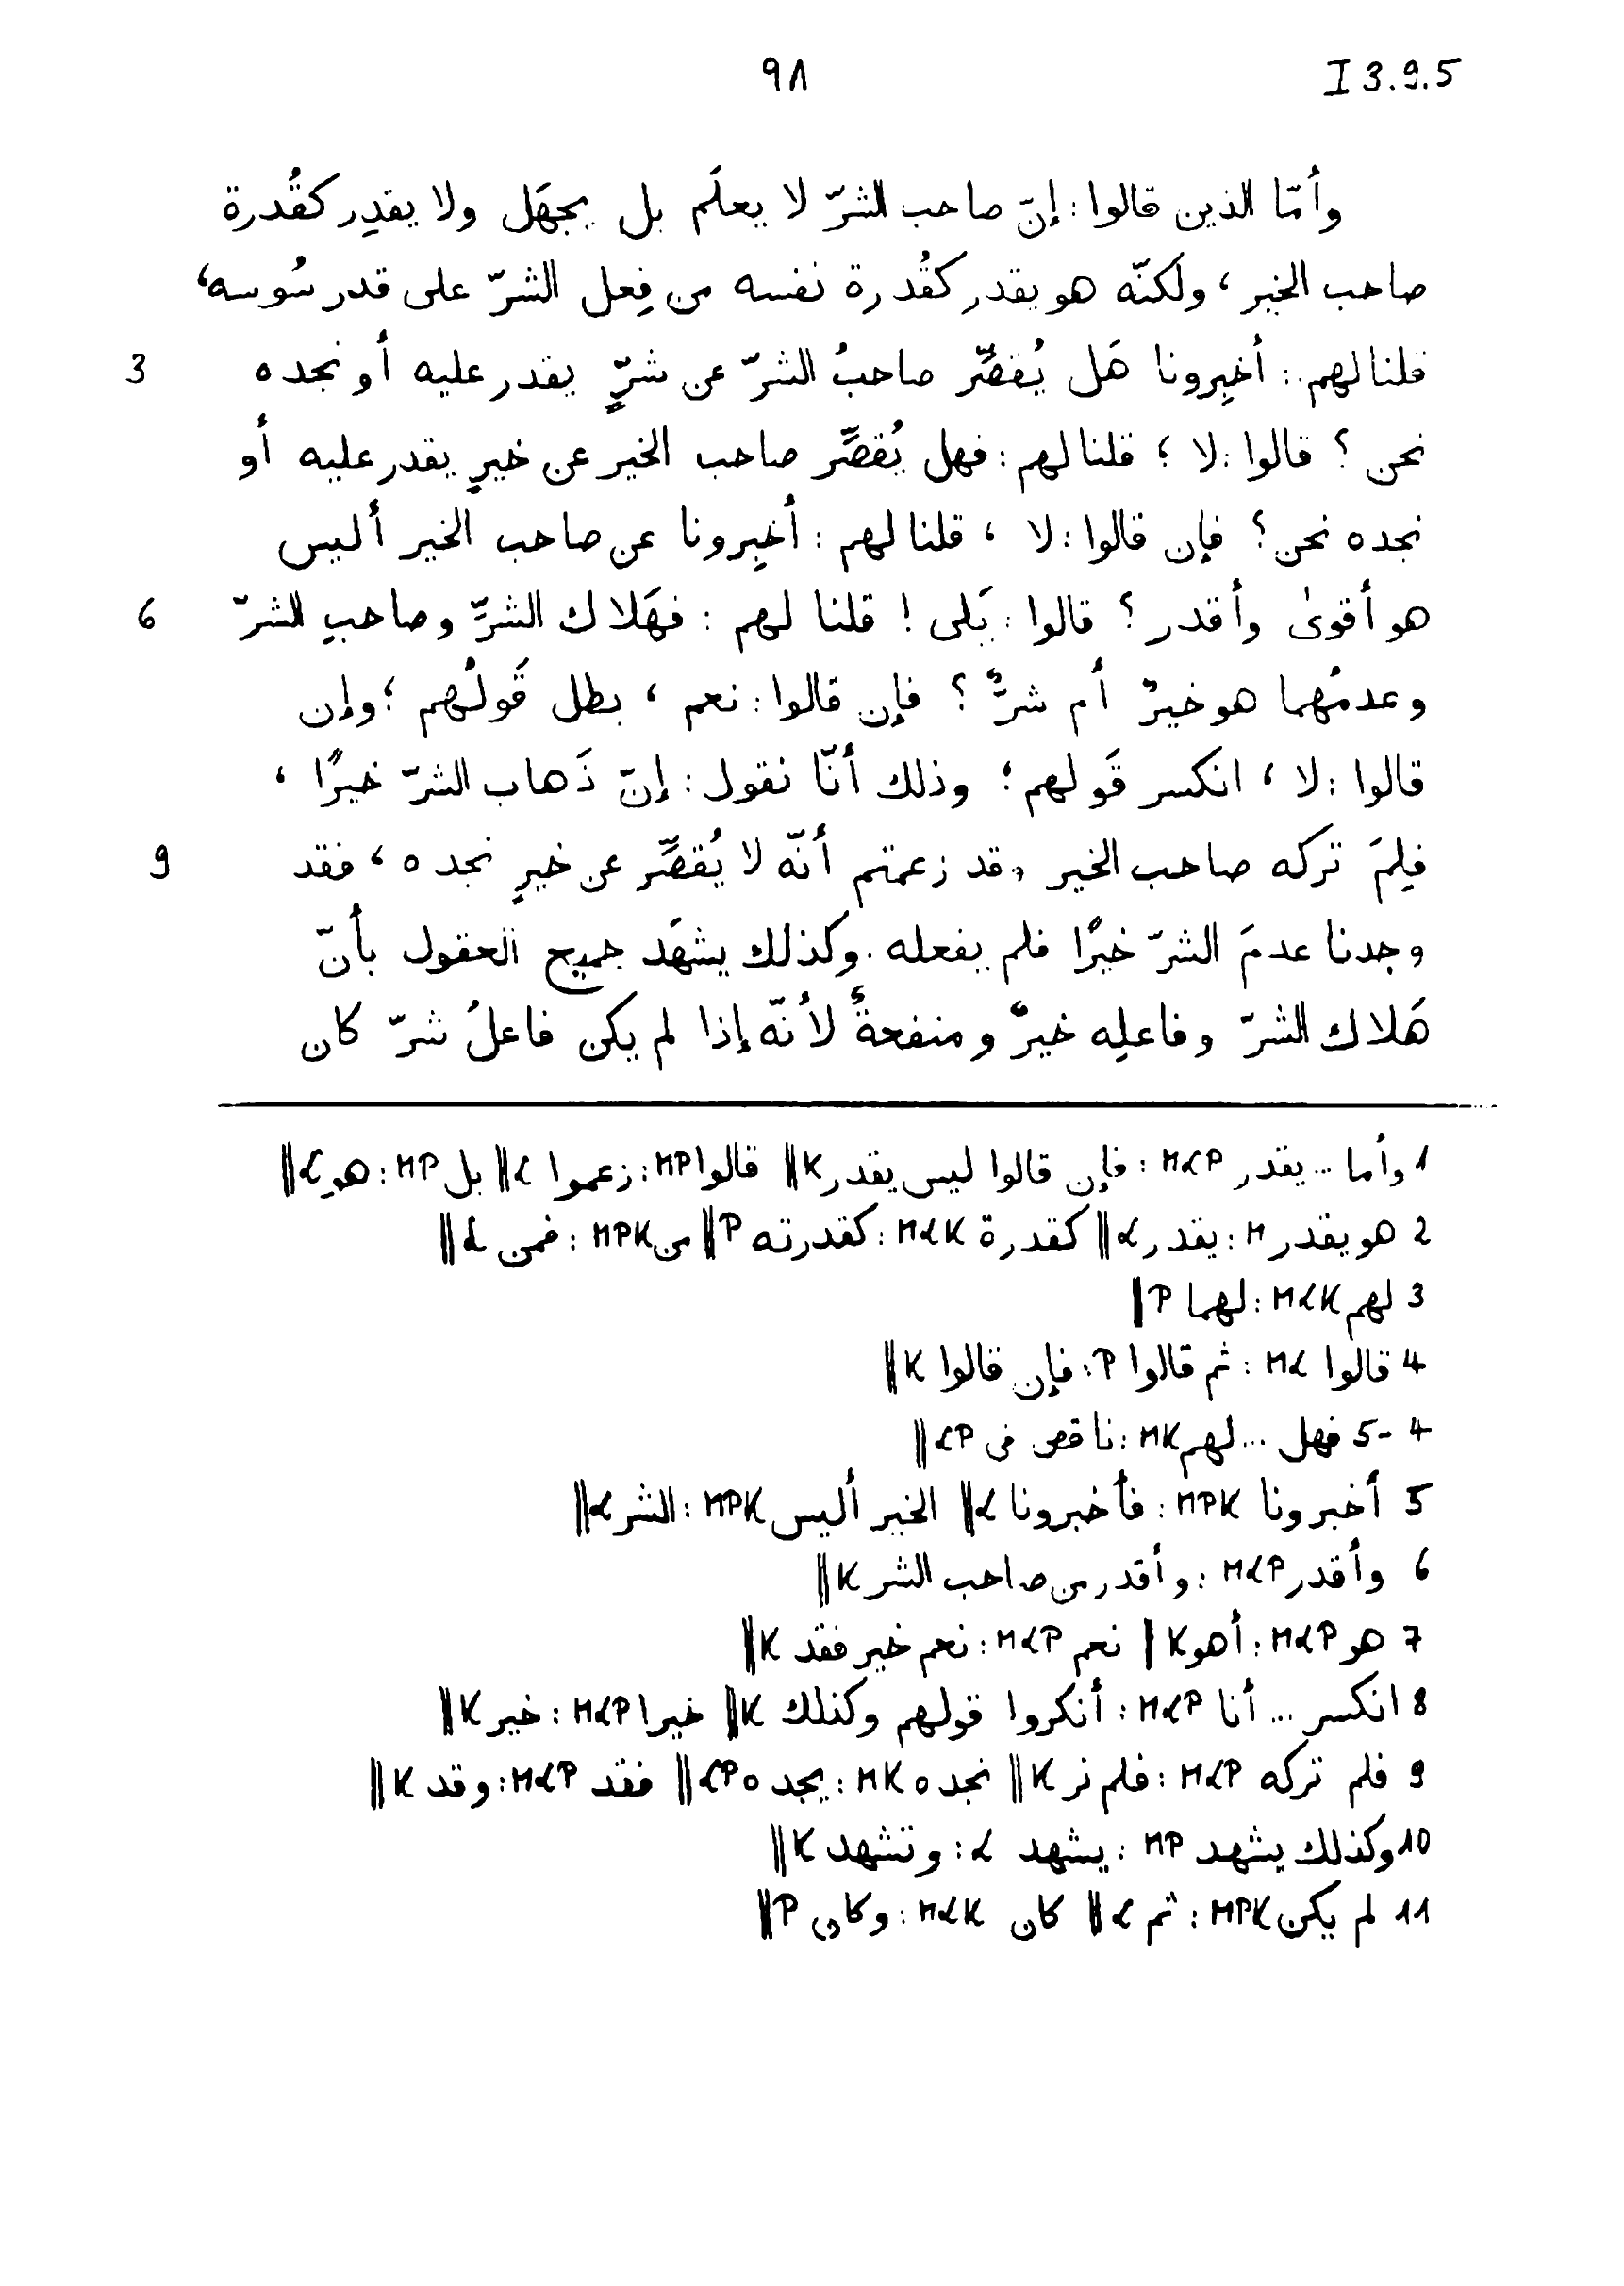 I 3.9.5 ٩٨
وأمّا الذين قالوا : إنّ صاحب الشرّ لا يعلَم بل يجهَل ولا يقدِر كقُدرة
صاحب الخير ، ولكنّه هو يقدر كقُدرة نفسه من فِعل الشرّ على قدر سُوسه ،
قلنا لهم : أخبِرونا هَل يُقصِّر صاحبُ الشرّ عن شرٍّ يقدر عليه أو نجده 3
نحن ؟ قالوا : لا ؛ قلنا لهم : فهل يُقصِّر صاحب الخير عن خيرٍ يقدر عليه أو
نجده نحن ؟ فإن قالوا : لا ، قلنا لهم : أخبِرونا عن صاحب الخير أليس
هو أقوىٰ وأقدر ؟ قالوا : بَلى ! قلنا لهم : فهَلاك الشرِّ وصاحبِ الشرّ 6
وعدمُهما هو خيرٌ أم شرٌّ ؟ فإن قالوا : نعم ، بطل قَولُهم ؛ وإن
قالوا : لا ، انكسر قَولهم ؛ وذلك أنّا نقول : إنّ ذَهاب الشرّ خيرًا ،
فلِمَ تركه صاحب الخير وقد زعمتم أنّه لا يُقصِّر عن خيرٍ نجده ، فقد 9
وجدنا عدمَ الشرّ خيرًا فلم يفعله . وكذلك يشهَد جميع العقول بأنّ
هَلاك الشرّ وفاعلِه خيرٌ ومنفعةٌ لأنّه إذا لم يكن فاعلُ شرّ كان
1 وأما ... يقدر MLP : فإن قالوا ليس يقدر K || قالوا MP : زعموا L || بل MP : هو L ||
2 هو يقدر M : يقدر L || كقدرة MLK : كقدرته P || من MPK : فمن L ||
3 لهم MLK : لهما P |
4 قالوا ML : ثم قالوا P : فإن قالوا K ||
4-5 فهل ... لهم MK : ناقص في LP ||
5 أخبرونا MPK : فأخبرونا L || الخير أليس MPK : الشر L ||
6 وأقدر MLP : وأقدر من صاحب الشر K ||
7 هو MLP : أهو K | نعم MLP : نعم خير فقد K ||
8 انكسر ... أنا MLP : أنكروا قولهم وكذلك K || خيرا MLP : خير K ||
9 فلم تركه MLP : فلم نر K || نجده MK : يجده LP || فقد MLP : وقد K ||
10 وكذلك يشهد MP : يشهد L : وتشهد K ||
11 لم يكن MPK : ثم L || كان MLK : وكان P ||